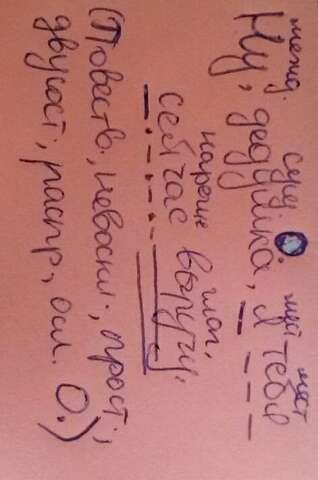 межд. сущ. мест мест
Ну, дедушка, я тебя
наречие глаг.
сейчас выпущу.
(Повеств., невоскл., прост.,
двусост., распр., осл. О.)